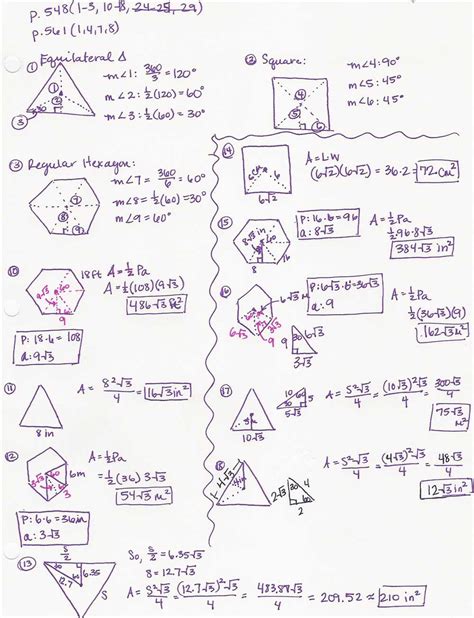 p. 548 (1-3, 10-18, 24-25, 29)
p. 561 (1,4,7,8)
① Equilateral Δ
1
2
m∠1: 360/3 = 120°
m∠2: ½(120) = 60°
m∠3: ½(60) = 30°
② Square:
4
5
6
m∠4: 90°
m∠5: 45°
m∠6: 45°
③ Regular Hexagon:
7
8
9
m∠7 = 360/6 = 60°
m∠8 = ½(60) = 30°
m∠9 = 60°
⑭
6√2
A = LW
(6√2)(6√2) = 36·2 = 72 cm²
⑮
8
16
P: 16·6 = 96
a: 8√3
A = ½Pa
½·96·8√3
384√3 in²
⑩
18ft
9√3
9
A = ½Pa
A = ½(108)(9√3)
486√3 ft²
P: 18·6 = 108
a: 9√3
⑯
6√3 M
6√3
9
P: 6√3·6 = 36√3
a: 9
9
30
6√3
3√3
A = ½Pa
½(36√3)(9)
162√3 M²
⑪
8 in
A = 8²√3/4 = 16√3 in²
⑰
10√3
10
60
30
5
5√3
A = S²√3/4 = (10√3)²√3/4 = 300√3/4
75√3 M²
⑫
6m
3
A = ½Pa
= ½(36) 3√3
54√3 M²
P: 6·6 = 36in
a: 3√3
⑱
4√3
2√3
30
4
60
2
A = S²√3/4 = (4√3)²√3/4 = 48√3/4
12√3 in²
⑬
S/2
6.35
12.7
S
So, S/2 = 6.35√3
S = 12.7√3
A = S²√3/4 = (12.7√3)²√3/4 = 483.87√3/4 = 209.52 ≈ 210 in²